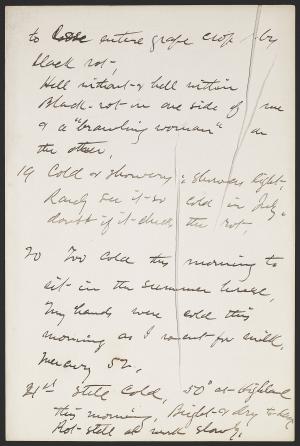 to lose entire grape crop by
black rot,
Hell without & hell within
Black-rot on one side of me
& a "brawling woman" on
the other.
19 Cold & showery; showers light,
Rarely see it so cold in July.
doubt if it checks the rot,
20 Too cold this morning to
sit in the summer house,
My hands were cold this
morning as I went for milk,
Mercury 52,
21st Still cold, 50° at Highland
this morning, Bright & dry to-day
Rot still at work slowly,